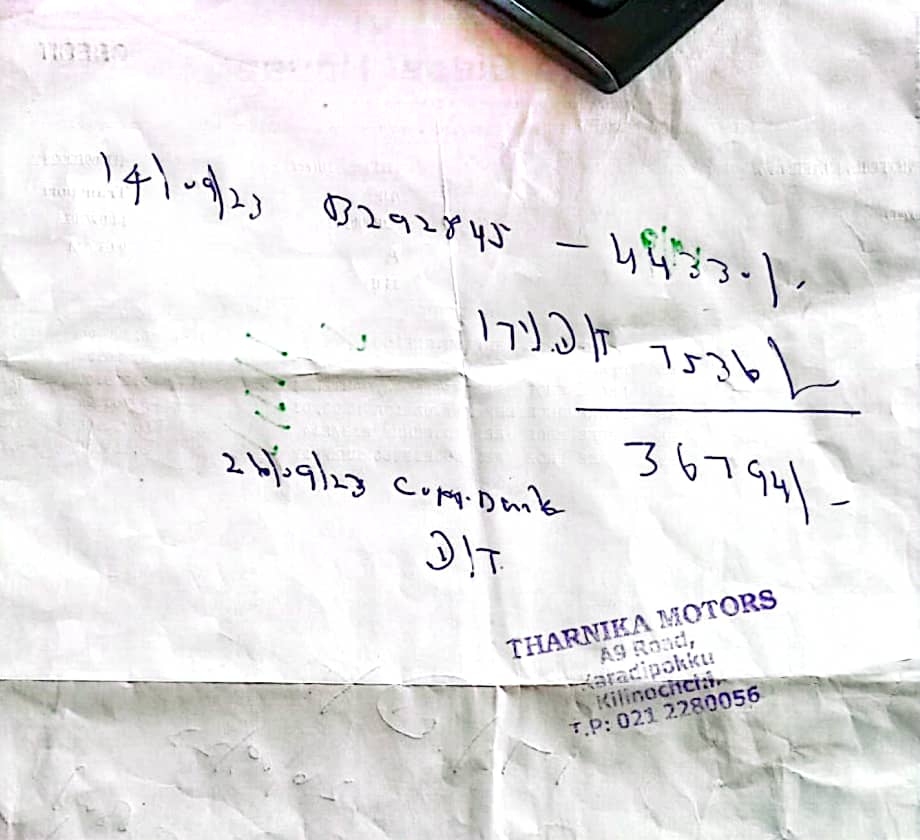 14/09/23 B292845 – 44330/-
17% D/T 7536/-
36794/-
26/09/23 Com.Bank
D/T.
THARNIKA MOTORS
A9 Road,
Karadipokku
Kilinochchi.
T.P: 021 2280056